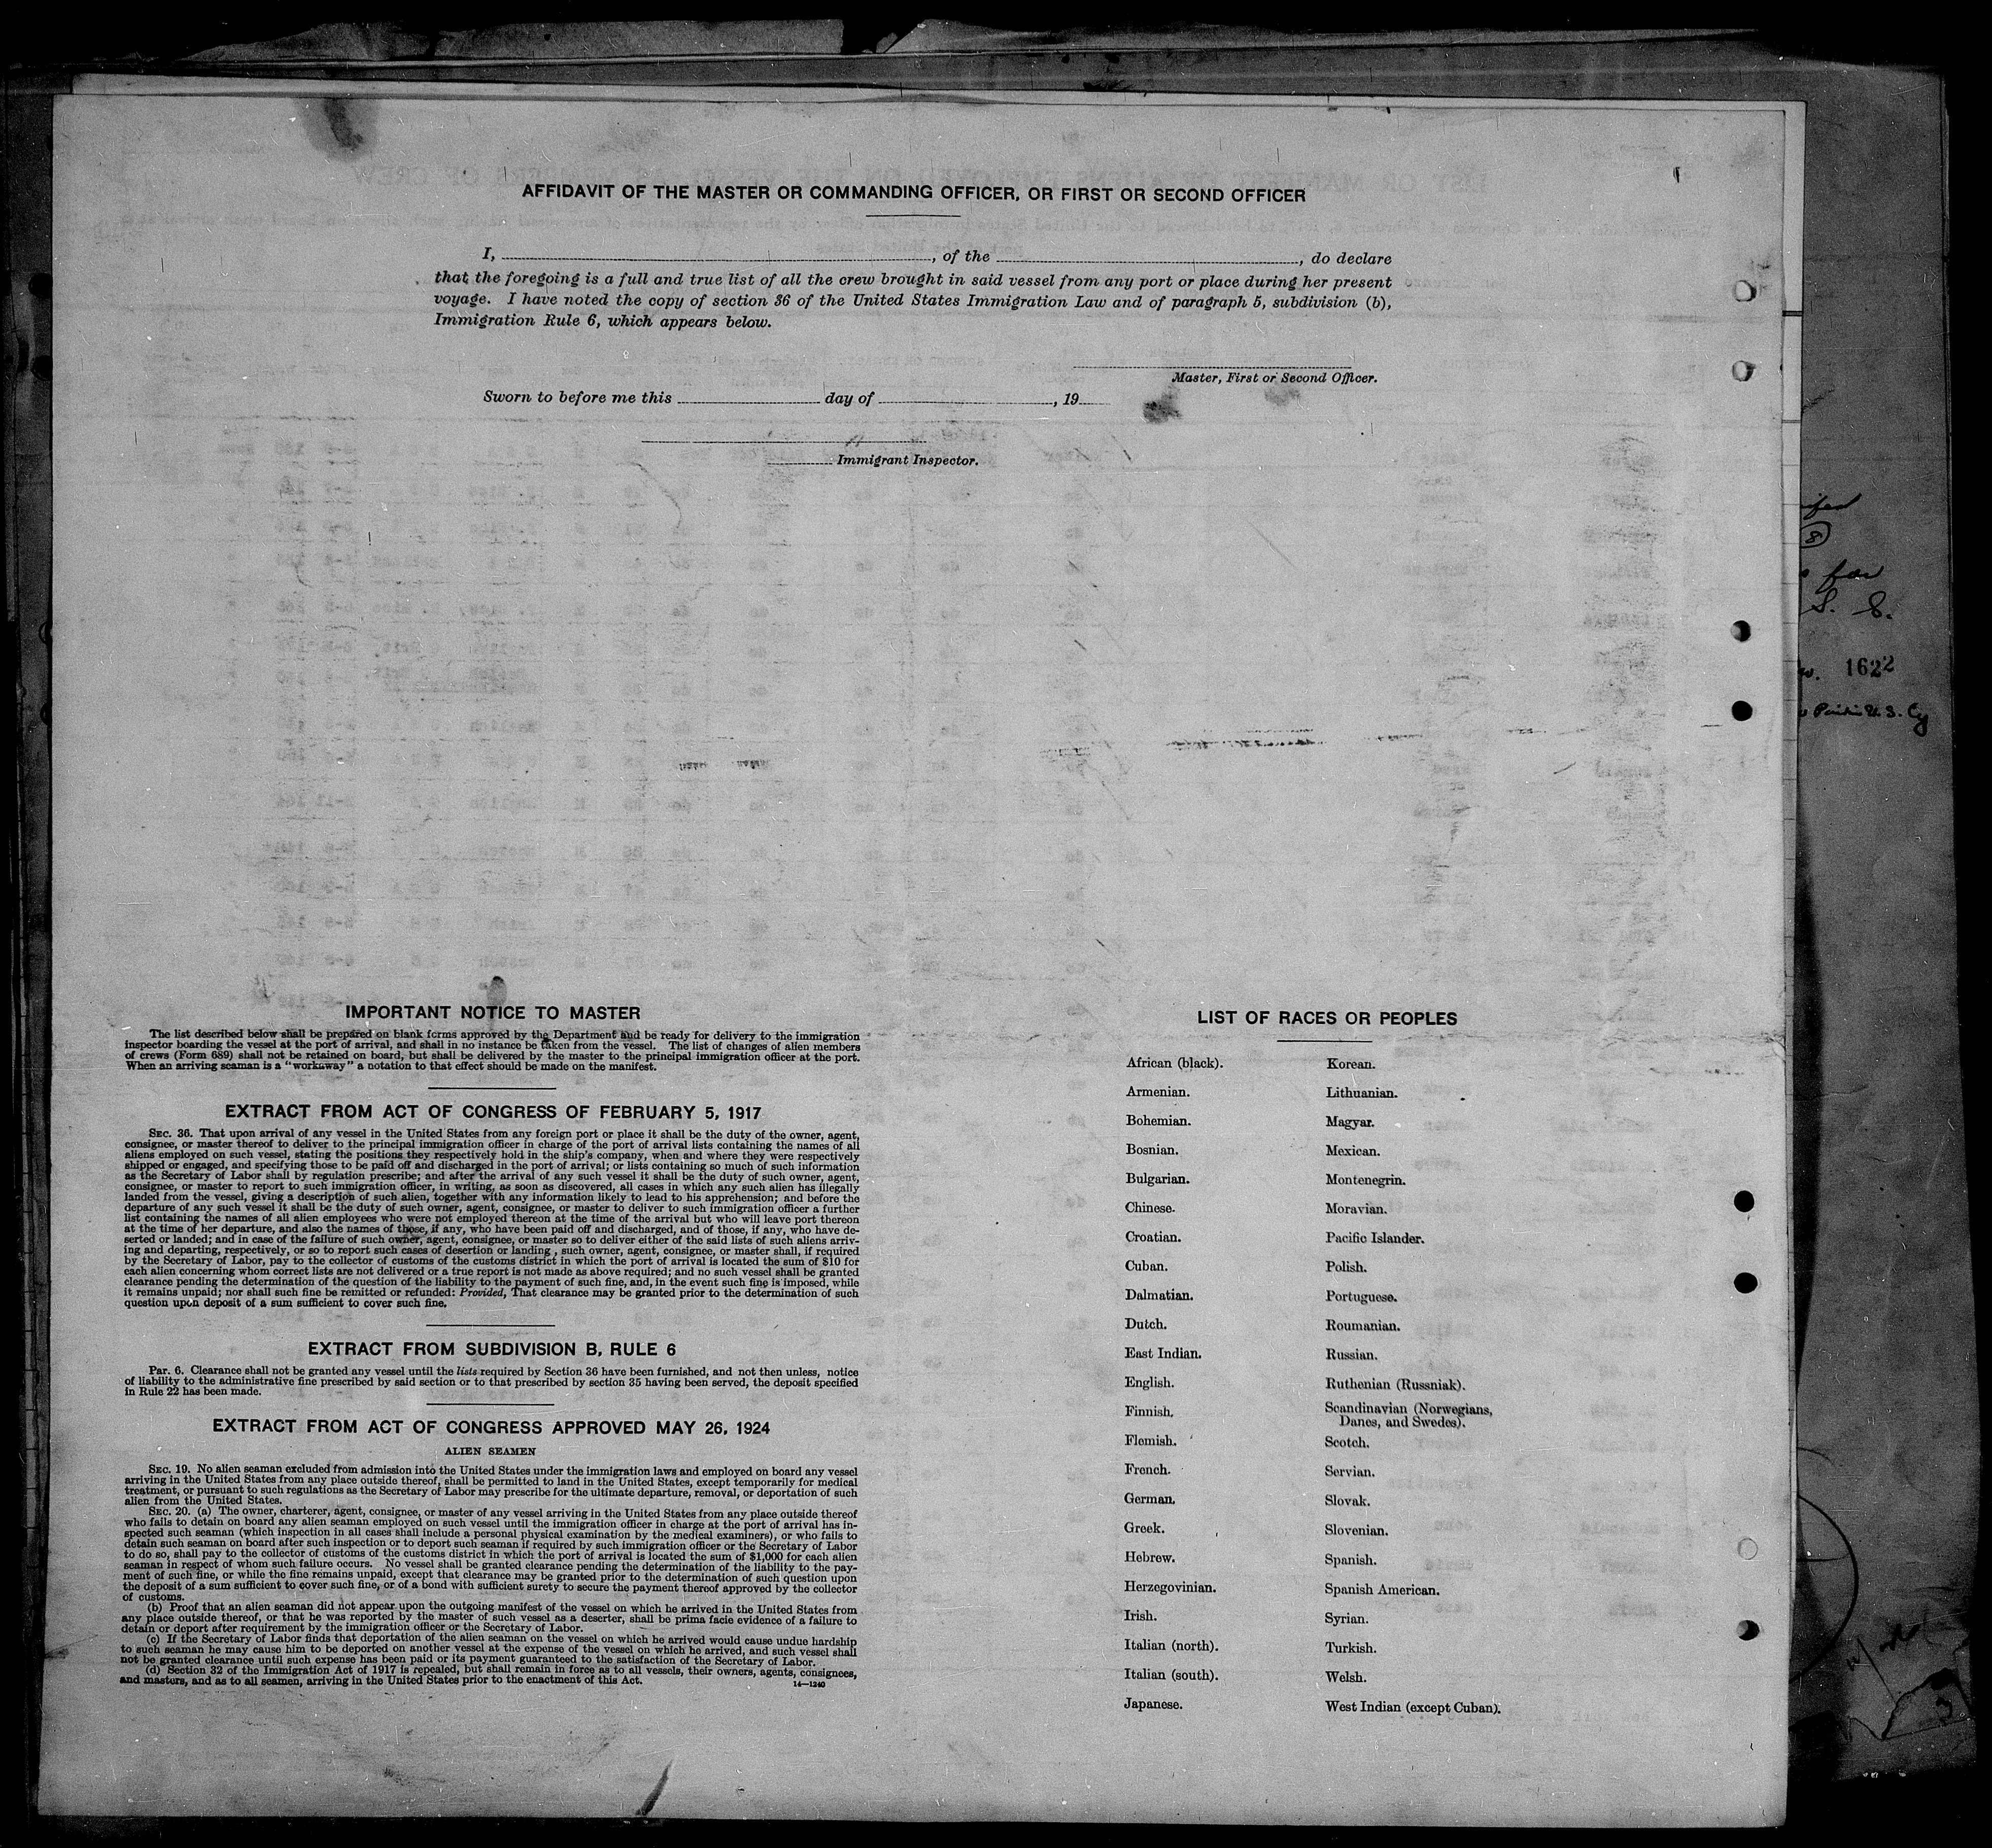 AFFIDAVIT OF THE MASTER OR COMMANDING OFFICER, OR FIRST OR SECOND OFFICER
I, , of the , do declare
that the foregoing is a full and true list of all the crew brought in said vessel from any port or place during her present
voyage. I have noted the copy of section 36 of the United States Immigration Law and of paragraph 5, subdivision (b),
Immigration Rule 6, which appears below.
Master, First or Second Officer.
Sworn to before me this day of , 19
Immigrant Inspector.
IMPORTANT NOTICE TO MASTER
The list described below shall be prepared on blank forms approved by the Department and be ready for delivery to the immigration
inspector boarding the vessel at the port of arrival, and shall in no instance be taken from the vessel. The list of changes of alien members
of crews (Form 689) shall not be retained on board, but shall be delivered by the master to the principal immigration officer at the port.
When an arriving seaman is a "workaway" a notation to that effect should be made on the manifest.
EXTRACT FROM ACT OF CONGRESS OF FEBRUARY 5, 1917
SEC. 36. That upon arrival of any vessel in the United States from any foreign port or place it shall be the duty of the owner, agent,
consignee, or master thereof to deliver to the principal immigration officer in charge of the port of arrival lists containing the names of all
aliens employed on such vessel, stating the positions they respectively hold in the ship's company, when and where they were respectively
shipped or engaged, and specifying those to be paid off and discharged in the port of arrival; or lists containing so much of such information
as the Secretary of Labor shall by regulation prescribe; and after the arrival of any such vessel it shall be the duty of such owner, agent,
consignee, or master to report to such immigration officer, in writing, as soon as discovered, all cases in which any such alien has illegally
landed from the vessel, giving a description of such alien, together with any information likely to lead to his apprehension; and before the
departure of any such vessel it shall be the duty of such owner, agent, consignee, or master to deliver to such immigration officer a further
list containing the names of all alien employees who were not employed thereon at the time of the arrival but who will leave port thereon
at the time of her departure, and also the names of those, if any, who have been paid off and discharged, and of those, if any, who have de-
serted or landed; and in case of the failure of such owner, agent, consignee, or master so to deliver either of the said lists of such aliens arriv-
ing and departing, respectively, or so to report such cases of desertion or landing, such owner, agent, consignee, or master shall, if required
by the Secretary of Labor, pay to the collector of customs of the customs district in which the port of arrival is located the sum of $10 for
each alien concerning whom correct lists are not delivered or a true report is not made as above required; and no such vessel shall be granted
clearance pending the determination of the question of the liability to the payment of such fine, and, in the event such fine is imposed, while
it remains unpaid; nor shall such fine be remitted or refunded: Provided, That clearance may be granted prior to the determination of such
question upon deposit of a sum sufficient to cover such fine.
EXTRACT FROM SUBDIVISION B, RULE 6
Par. 6. Clearance shall not be granted any vessel until the lists required by Section 36 have been furnished, and not then unless, notice
of liability to the administrative fine prescribed by said section or to that prescribed by section 35 having been served, the deposit specified
in Rule 22 has been made.
EXTRACT FROM ACT OF CONGRESS APPROVED MAY 26, 1924
ALIEN SEAMEN
SEC. 19. No alien seaman excluded from admission into the United States under the immigration laws and employed on board any vessel
arriving in the United States from any place outside thereof, shall be permitted to land in the United States, except temporarily for medical
treatment, or pursuant to such regulations as the Secretary of Labor may prescribe for the ultimate departure, removal, or deportation of such
alien from the United States.
SEC. 20. (a) The owner, charterer, agent, consignee, or master of any vessel arriving in the United States from any place outside thereof
who fails to detain on board any alien seaman employed on such vessel until the immigration officer in charge at the port of arrival has in-
spected such seaman (which inspection in all cases shall include a personal physical examination by the medical examiners), or who fails to
detain such seaman on board after such inspection or to deport such seaman if required by such immigration officer or the Secretary of Labor
to do so, shall pay to the collector of customs of the customs district in which the port of arrival is located the sum of $1,000 for each alien
seaman in respect of whom such failure occurs. No vessel shall be granted clearance pending the determination of the liability to the pay-
ment of such fine, or while the fine remains unpaid, except that clearance may be granted prior to the determination of such question upon
the deposit of a sum sufficient to cover such fine, or of a bond with sufficient surety to secure the payment thereof approved by the collector
of customs.
(b) Proof that an alien seaman did not appear upon the outgoing manifest of the vessel on which he arrived in the United States from
any place outside thereof, or that he was reported by the master of such vessel as a deserter, shall be prima facie evidence of a failure to
detain or deport after requirement by the immigration officer or the Secretary of Labor.
(c) If the Secretary of Labor finds that deportation of the alien seaman on the vessel on which he arrived would cause undue hardship
to such seaman he may cause him to be deported on another vessel at the expense of the vessel on which he arrived, and such vessel shall
not be granted clearance until such expense has been paid or its payment guaranteed to the satisfaction of the Secretary of Labor.
(d) Section 32 of the Immigration Act of 1917 is repealed, but shall remain in force as to all vessels, their owners, agents, consignees,
and masters, and as to all seamen, arriving in the United States prior to the enactment of this Act.
14—1240
LIST OF RACES OR PEOPLES
African (black). Korean.
Armenian. Lithuanian.
Bohemian. Magyar.
Bosnian. Mexican.
Bulgarian. Montenegrin.
Chinese. Moravian.
Croatian. Pacific Islander.
Cuban. Polish.
Dalmatian. Portuguese.
Dutch. Roumanian.
East Indian. Russian.
English. Ruthenian (Russniak).
Finnish. Scandinavian (Norwegians,
Danes, and Swedes).
Flemish. Scotch.
French. Servian.
German. Slovak.
Greek. Slovenian.
Hebrew. Spanish.
Herzegovinian. Spanish American.
Irish. Syrian.
Italian (north). Turkish.
Italian (south). Welsh.
Japanese. West Indian (except Cuban).
8
for
S. S.
1622
U.S. Cy